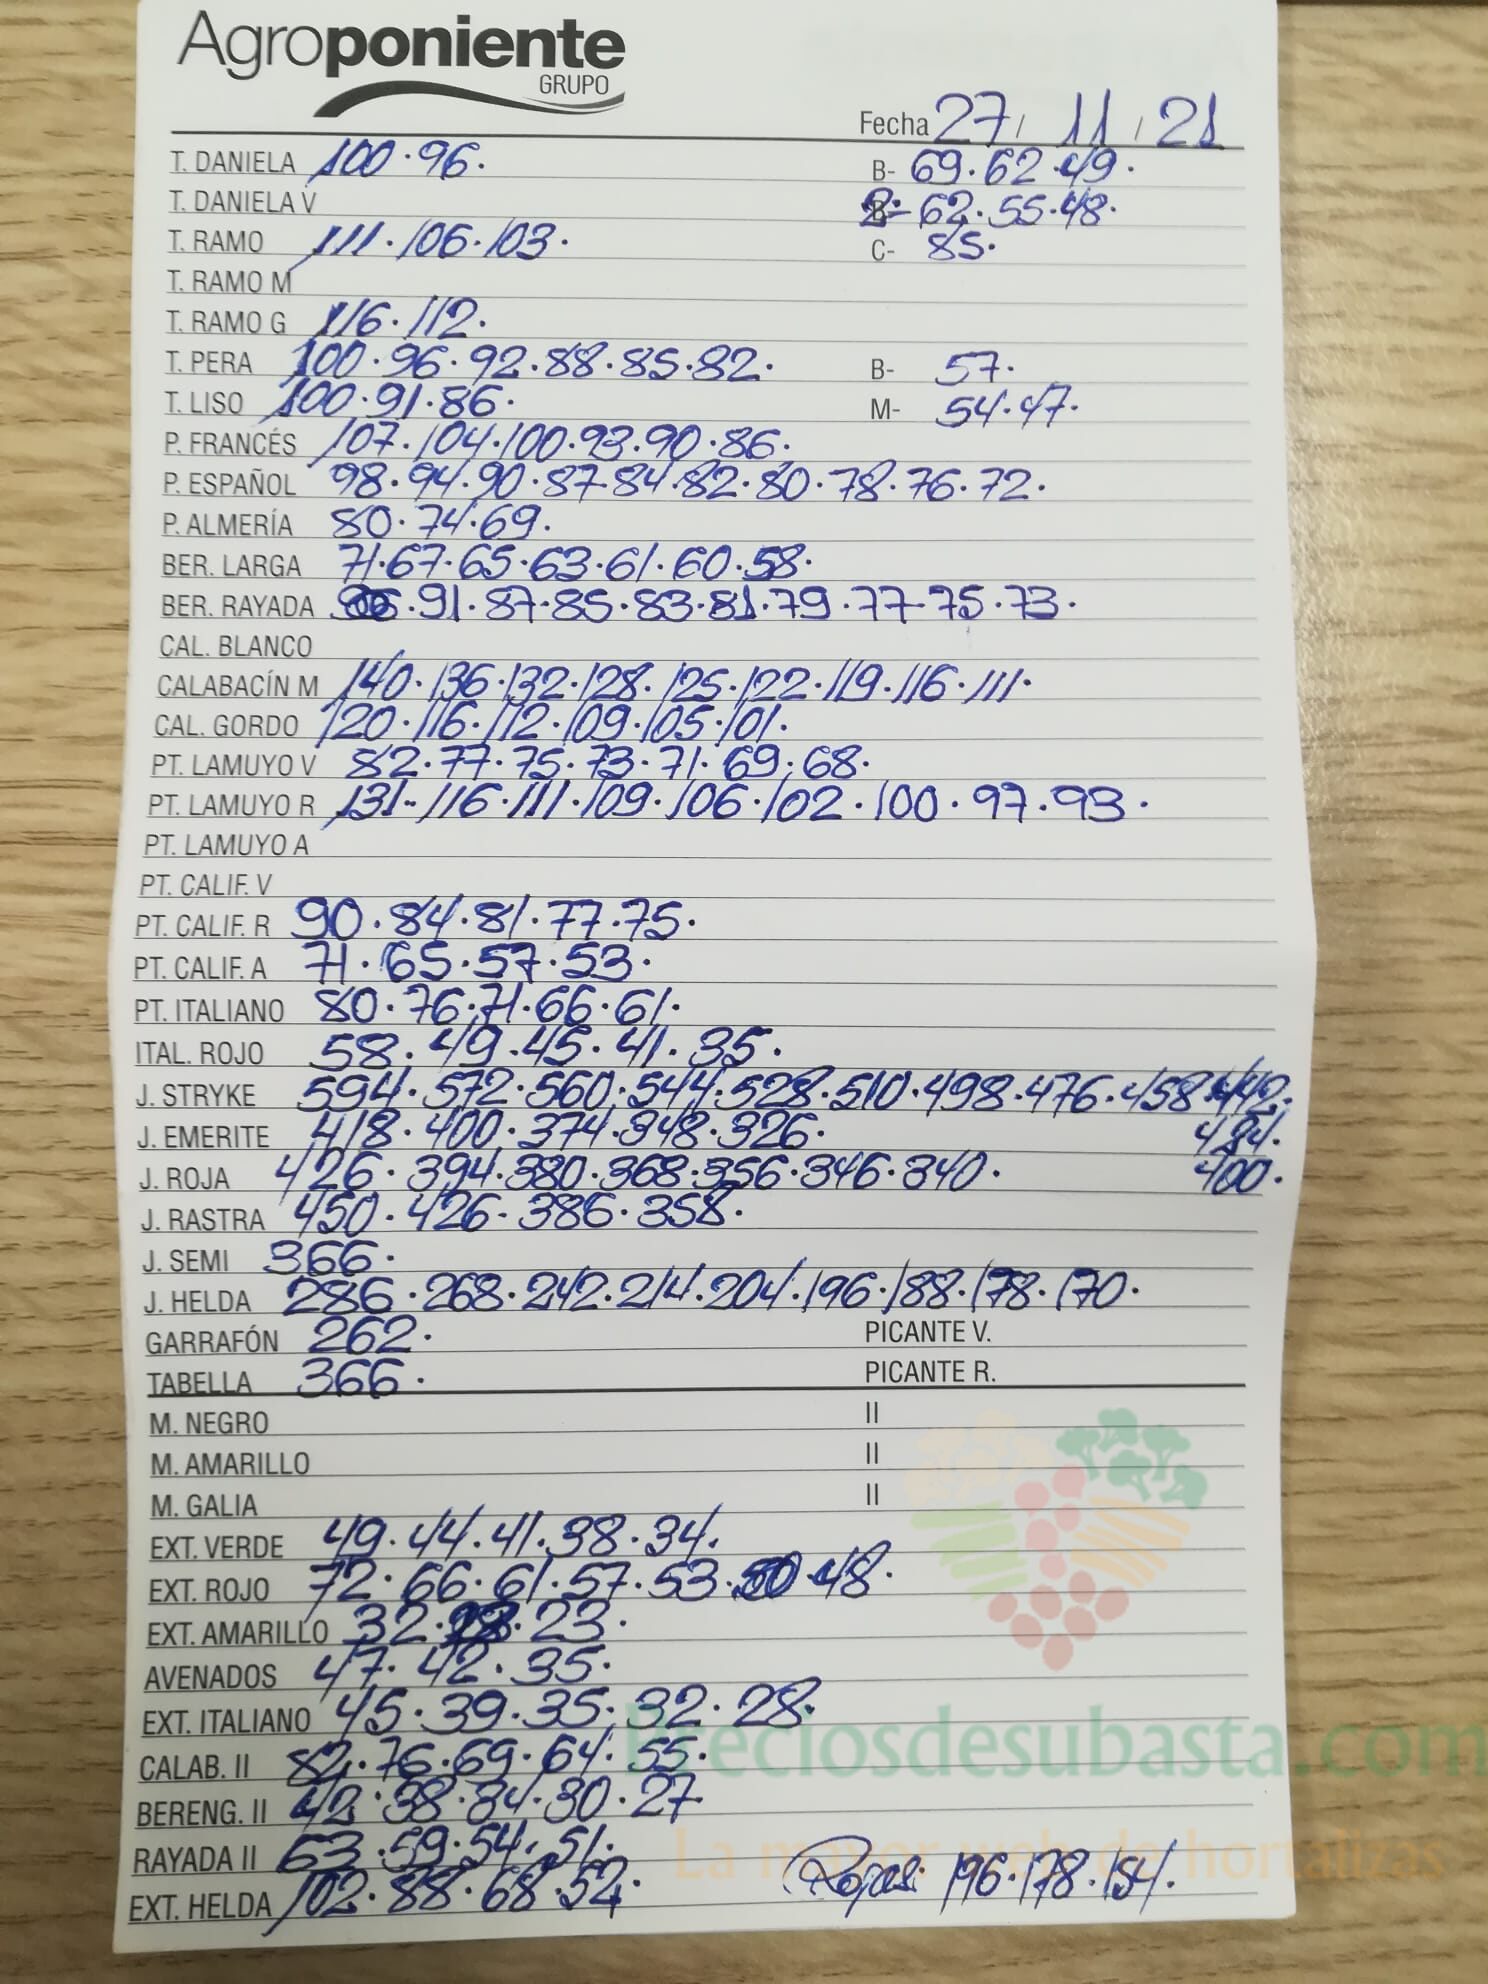 Agroponiente
GRUPO
Fecha 27 / 11 / 21
T. DANIELA 100·96. B- 69·62·49.
T. DANIELA V 2- 62·55·48.
T. RAMO 111·106·103. C- 85.
T. RAMO M
T. RAMO G 116·112.
T. PERA 100·96·92·88·85·82. B- 57.
T. LISO 100·91·86. M- 54·47.
P. FRANCÉS 107·104·100·93·90·86.
P. ESPAÑOL 98·94·90·87·84·82·80·78·76·72.
P. ALMERÍA 80·74·69.
BER. LARGA 71·67·65·63·61·60·58.
BER. RAYADA ·91·87·85·83·81·79·77·75·73.
CAL. BLANCO
CALABACÍN M 140·136·132·128·125·122·119·116·111.
CAL. GORDO 120·116·112·109·105·101.
PT. LAMUYO V 82·77·75·73·71·69·68.
PT. LAMUYO R 131·116·111·109·106·102·100·97·93.
PT. LAMUYO A
PT. CALIF. V
PT. CALIF. R 90·84·81·77·75.
PT. CALIF. A 71·65·57·53.
PT. ITALIANO 80·76·71·66·61.
ITAL. ROJO 58·49·45·41·35.
J. STRYKE 594·572·560·544·528·510·498·476·458·442.
J. EMERITE 418·400·374·348·326.
J. ROJA 426·394·380·368·356·346·340. 400.
J. RASTRA 450·426·386·358.
J. SEMI 366.
J. HELDA 286·268·242·214·204·196·188·178·170.
GARRAFÓN 262. PICANTE V.
TABELLA 366. PICANTE R.
M. NEGRO II
M. AMARILLO II
M. GALIA II
EXT. VERDE 49·44·41·38·34.
EXT. ROJO 72·66·61·57·53·50·48.
EXT. AMARILLO 32·23.
AVENADOS 47·42·35.
EXT. ITALIANO 45·39·35·32·28.
Preciosdesubasta.com
CALAB. II 82·76·69·64·55.
BERENG. II 42·38·34·30·27
RAYADA II 63·59·54·51.
La mayor web de hortalizas
EXT. HELDA 102·88·68·52. Rojas: 196·178·154.